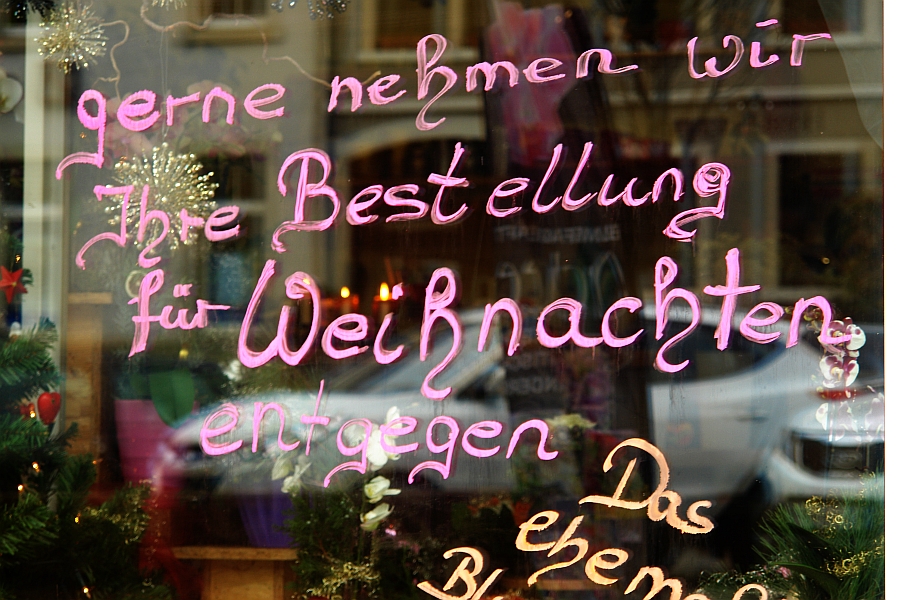 gerne nehmen wir
Ihre Bestellung
für Weihnachten
entgegen
Das